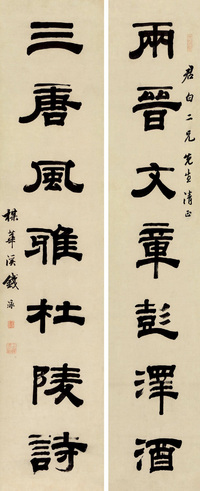 兩晉文章彭澤酒
君白二兄先生清正
三唐風雅杜陵詩
楳華溪錢泳